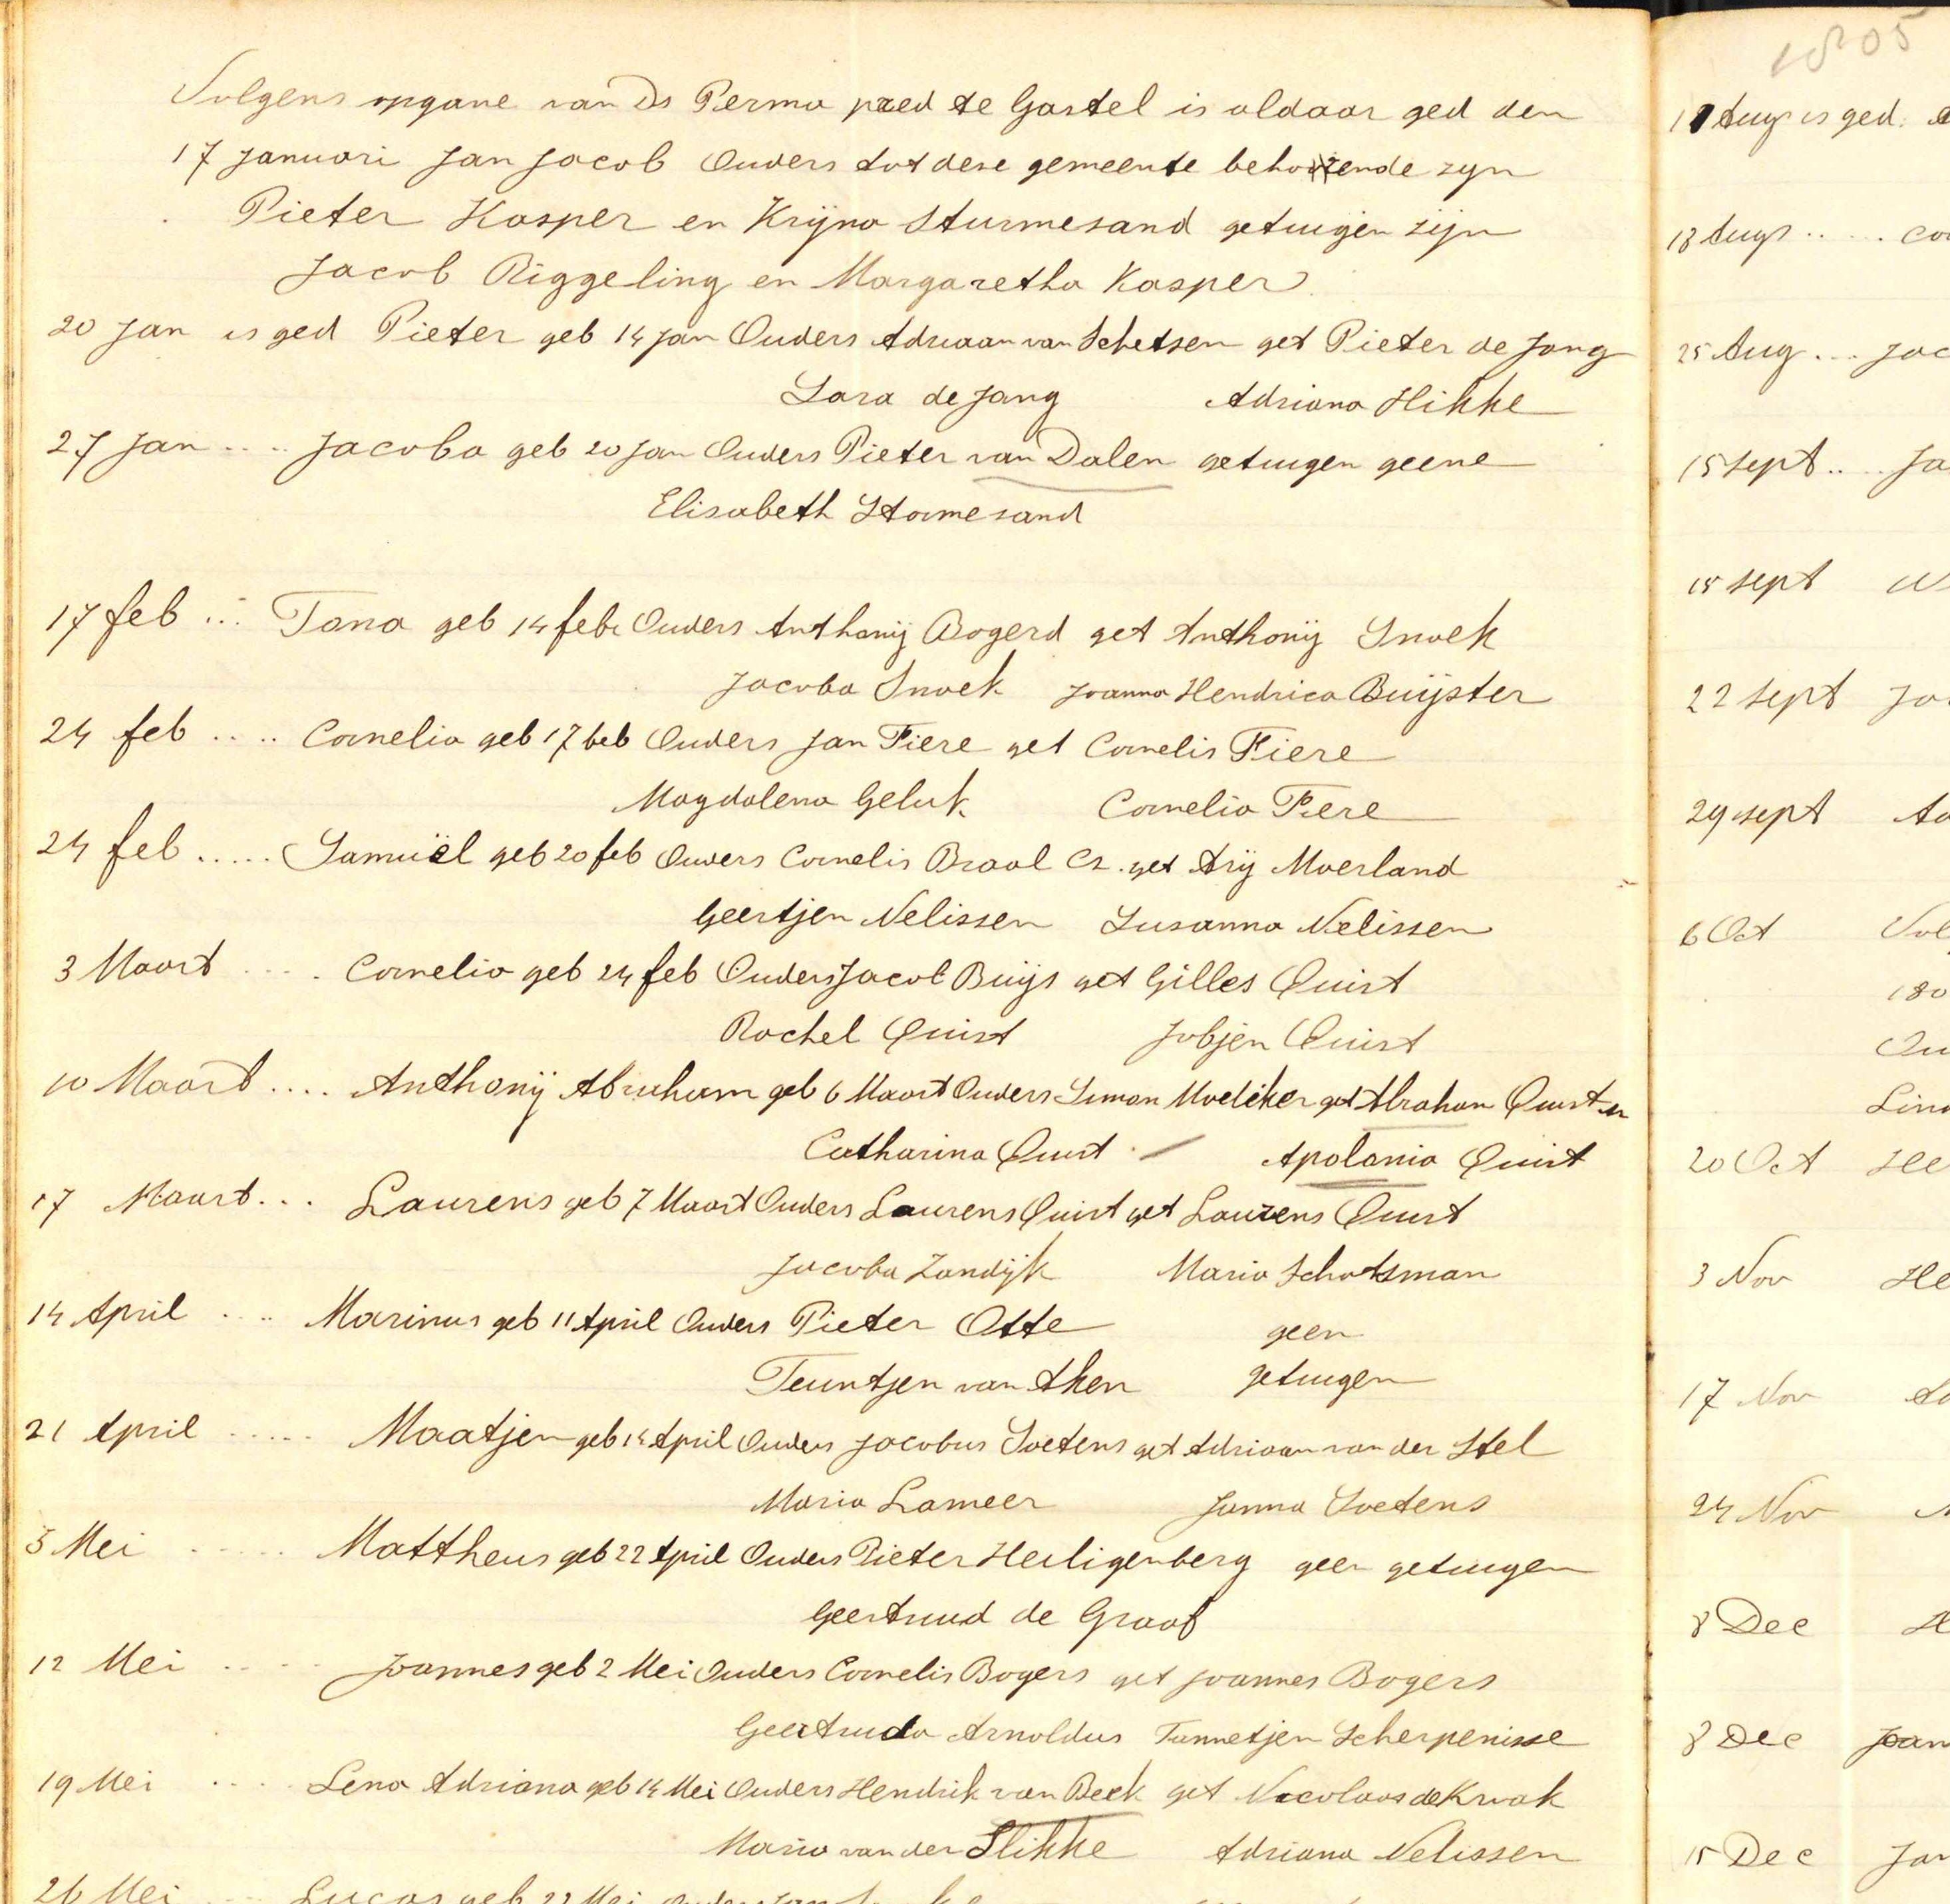 Volgens opgave van Ds Perma pred te Gastel is aldaar ged den
17 Januari Jan Jacob Ouders tot dese gemeente behorende zyn
Pieter Kasper en Krijna Sturmesand getuigen zijn
Jacob Riggeling en Margaretha Kasper
20 Jan is ged Pieter geb 14 Jan Ouders Adriaan van Schetsen get Pieter de Jong
Sara de Jong Adriana Hikke
27 Jan .... Jacoba geb 20 Jan Ouders Pieter van Dalen getuigen geene
Elisabeth Stormesand
17 feb ... Tana geb 14 feb Ouders Anthonij Bogerd get Anthonij Snoek
Jacoba Snoek Joanna Hendrica Buijster
24 feb .... Cornelia geb 17 feb Ouders Jan Fiere get Cornelis Fiere
Magdalena Geluk Cornelia Fiere
24 feb ..... Samuël geb 20 feb Ouders Cornelis Braal Cz. get Arij Moerland
Geertjen Nelissen Susanna Nelissen
3 Maart .... Cornelia geb 24 feb Ouders Jacob Buijs get Gilles Quist
Rachel Quist Jobjen Quist
10 Maart .... Anthonij Abraham geb 6 Maart Ouders Simon Moeliker get Abraham Quist en
Catharina Quist Apolonia Quist
17 Maart... Laurens geb 7 Maart Ouders Laurens Quist get Laurens Quist
Jacoba Zandijk Maria Schotsman
14 April .... Marinus geb 11 April Ouders Pieter Otte geen
Teuntjen van Aken getuigen
21 April ..... Maatjen geb 14 April Ouders Jacobus Soetens get Adriaan van der Stel
Maria Lameer Janna Soetens
5 Mei ..... Mattheus geb 22 April Ouders Pieter Heiligenberg geen getuigen
Geertruid de Graaf
12 Mei .... Joannes geb 2 Mei Ouders Cornelis Bogers get Joannes Bogers
Geertruda Arnoldus Tannetjen Scherpenisse
19 Mei .... Lena Adriana geb 14 Mei Ouders Hendrik van Beek get Nicolaas de Kwak
Maria van der Slikke Adriana Nelissen
26 Mei ... Lucas geb 22 Mei Ouders Jan
1805
11 Aug is ged.
18 Aug .....
25 Aug ... Jac
15 Sept .... Ja
15 Sept
22 Sept
29 Sept
6 Oct Vol
180
Ou
Lin
20 Oct He
3 Nov He
17 Nov
24 Nov
8 Dec
8 Dec Joan
15 Dec Jan